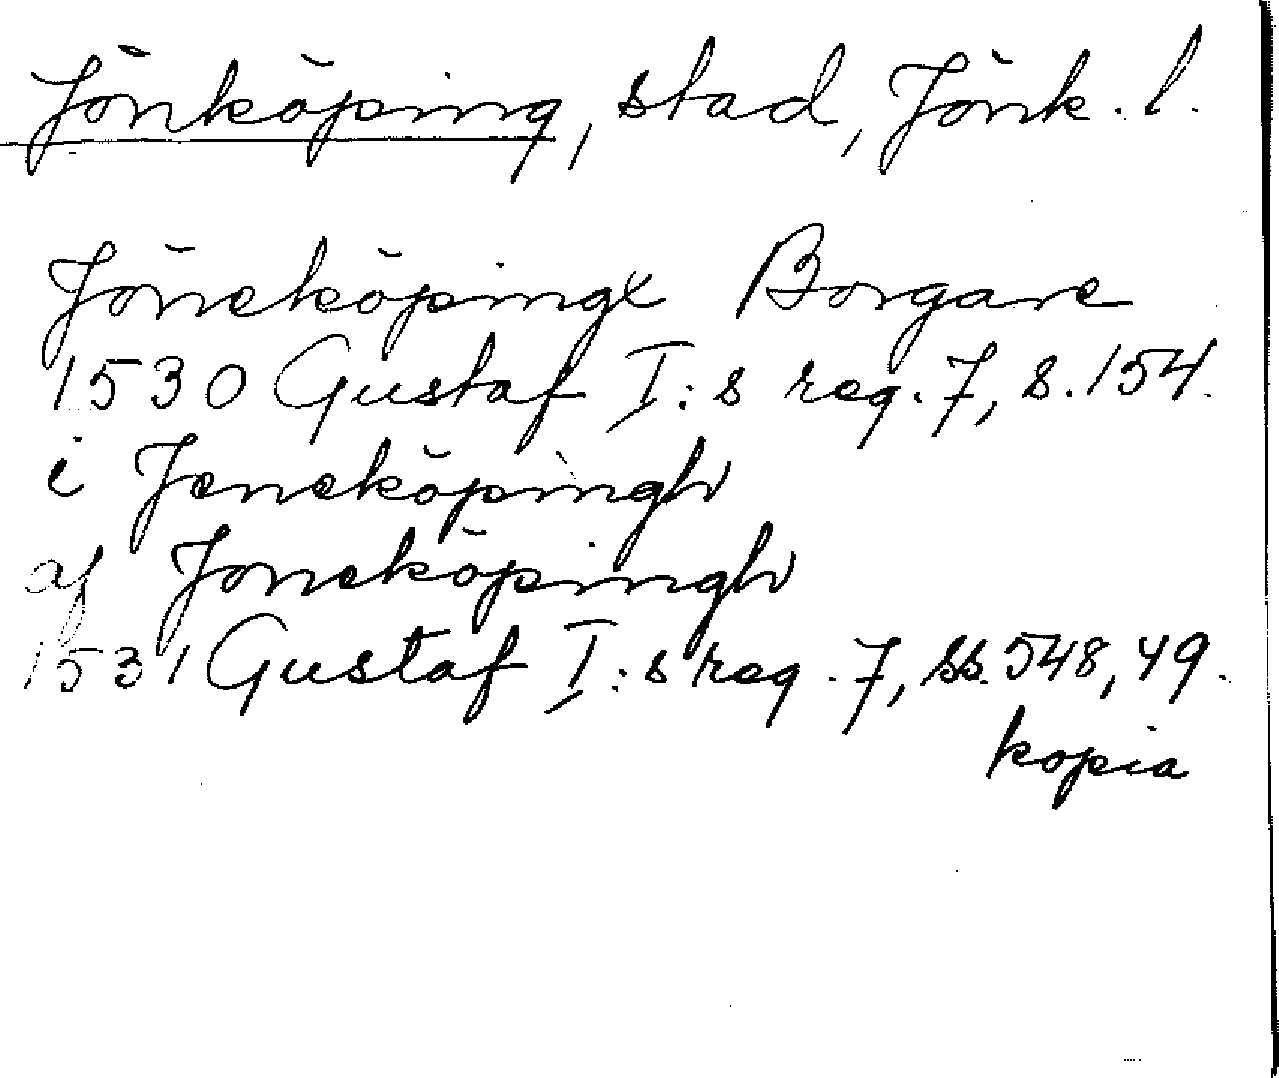 Jönköping, stad, Jönk. l.
Jöneköpingx Borgare
1530 Gustaf I:s reg. 7, s. 154.
i Jeneköpingh
af Joneköpingh
1531 Gustaf I:s reg. 7, ss. 548, 49.
kopia